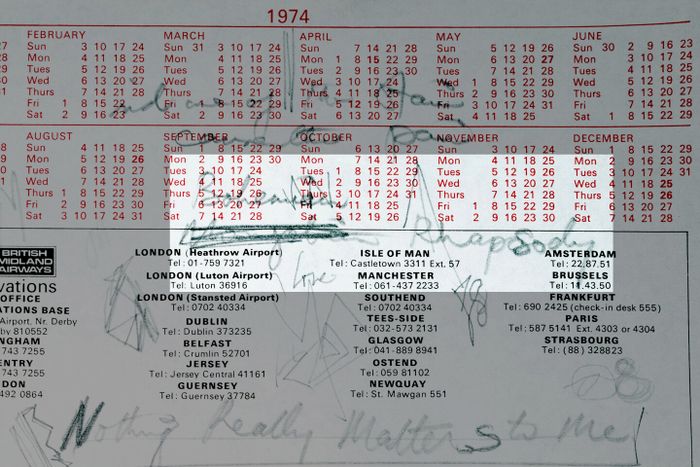 1974
FEBRUARY MARCH APRIL MAY JUNE
Sun 3 10 17 24 Sun 31 3 10 17 24 Sun 7 14 21 28 Sun 5 12 19 26 Sun 30 2 9 16 23
Mon 4 11 18 25 Mon 4 11 18 25 Mon 1 8 15 22 29 Mon 6 13 20 27 Mon 3 10 17 24
Tues 5 12 19 26 Tues 5 12 19 26 Tues 2 9 16 23 30 Tues 7 14 21 28 Tues 4 11 18 25
Wed 6 13 20 27 Wed 6 13 20 27 Wed 3 10 17 24 Wed 1 8 15 22 29 Wed 5 12 19 26
Thurs 7 14 21 28 Thurs 7 14 21 28 Thurs 4 11 18 25 Thurs 2 9 16 23 30 Thurs 6 13 20 27
Fri 1 8 15 22 Fri 1 8 15 22 29 Fri 5 12 19 26 Fri 3 10 17 24 31 Fri 7 14 21 28
Sat 2 9 16 23 Sat 2 9 16 23 30 Sat 6 13 20 27 Sat 4 11 18 25 Sat 1 8 15 22 29
AUGUST SEPTEMBER OCTOBER NOVEMBER DECEMBER
Sun 4 11 18 25 Sun 1 8 15 22 29 Sun 6 13 20 27 Sun 3 10 17 24 Sun 1 8 15 22 29
Mon 5 12 19 26 Mon 2 9 16 23 30 Mon 7 14 21 28 Mon 4 11 18 25 Mon 2 9 16 23 30
Tues 6 13 20 27 Tues 3 10 17 24 Tues 1 8 15 22 29 Tues 5 12 19 26 Tues 3 10 17 24 31
Wed 7 14 21 28 Wed 4 11 18 25 Wed 2 9 16 23 30 Wed 6 13 20 27 Wed 4 11 18 25
Thurs 1 8 15 22 29 Thurs 5 12 19 26 Thurs 3 10 17 24 31 Thurs 7 14 21 28 Thurs 5 12 19 26
Fri 2 9 16 23 30 Fri 6 13 20 27 Fri 4 11 18 25 Fri 1 8 15 22 29 Fri 6 13 20 27
Sat 3 10 17 24 31 Sat 7 14 21 28 Sat 5 12 19 26 Sat 2 9 16 23 30 Sat 7 14 21 28
Bohemian
Rhapsody
BRITISH
MIDLAND
AIRWAYS
LONDON (Heathrow Airport) ISLE OF MAN AMSTERDAM
Tel: 01-759 7321 Tel: Castletown 3311 Ext. 57 Tel: 22.87.51
vations LONDON (Luton Airport) MANCHESTER BRUSSELS
Tel: Luton 36916 Tel: 061-437 2233 Tel: 11.43.50
OFFICE LONDON (Stansted Airport) SOUTHEND FRANKFURT
ATIONS BASE Tel: 0702 40334 Tel: 0702 40334 Tel: 690 2425 (check-in desk 555)
Airport. Nr. Derby DUBLIN TEES-SIDE PARIS
by 810552 Tel: Dublin 373235 Tel: 032-573 2131 Tel: 587 5141 Ext. 4303 or 4304
NGHAM BELFAST GLASGOW STRASBOURG
743 7255 Tel: Crumlin 52701 Tel: 041-889 8941 Tel: (88) 328823
ENTRY JERSEY OSTEND
743 7255 Tel: Jersey Central 41161 Tel: 059 81102
DON GUERNSEY NEWQUAY
492 0864 Tel: Guernsey 37784 Tel: St. Mawgan 551
Nothing Really Matters to Me